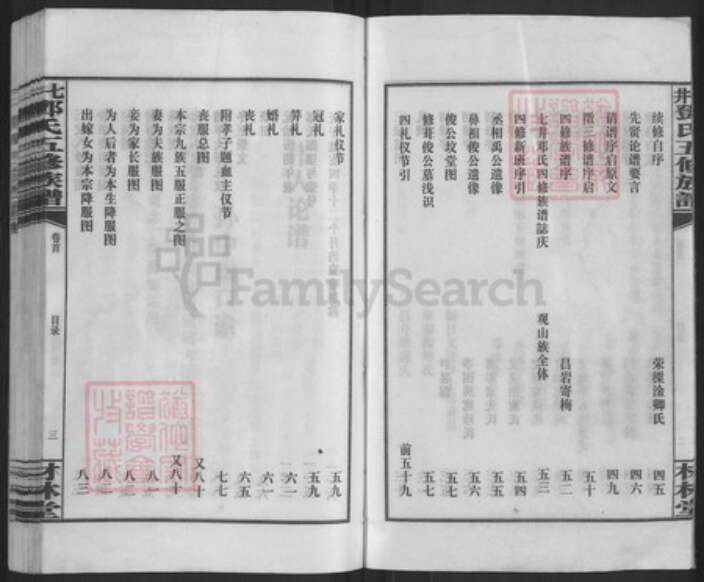 续修自序 荣樑淦卿氏 四五
先贤论谱要言 四六
请谱序启原文 四九
徵三修谱序启 五十
四修族谱序 昌岩寄梅 五二
七井邓氏四修族谱誌庆 观山族全体 五三
四修新班序引 五四
丞相禹公遗像 五五
鼻祖俊公遗像 五六
俊公坟堂图 五七
修茸俊公墓浅识 五七
四礼仪节引 前五十九
家礼仪节 五九
冠礼 五九
笄礼 六一
婚礼 六一
丧礼 六五
附孝子题血主仪节 七七
丧服总图 又八十
本宗九族五服正服之图 又八十
妻为夫族服图 八一
妾为家长服图 八一
为人后者为本生降服图 八二
出嫁女为本宗降服图 八三
井鄧氏五修族譜
林堂
七鄧氏五修族譜
卷首
目录
三
林堂
FamilySearch